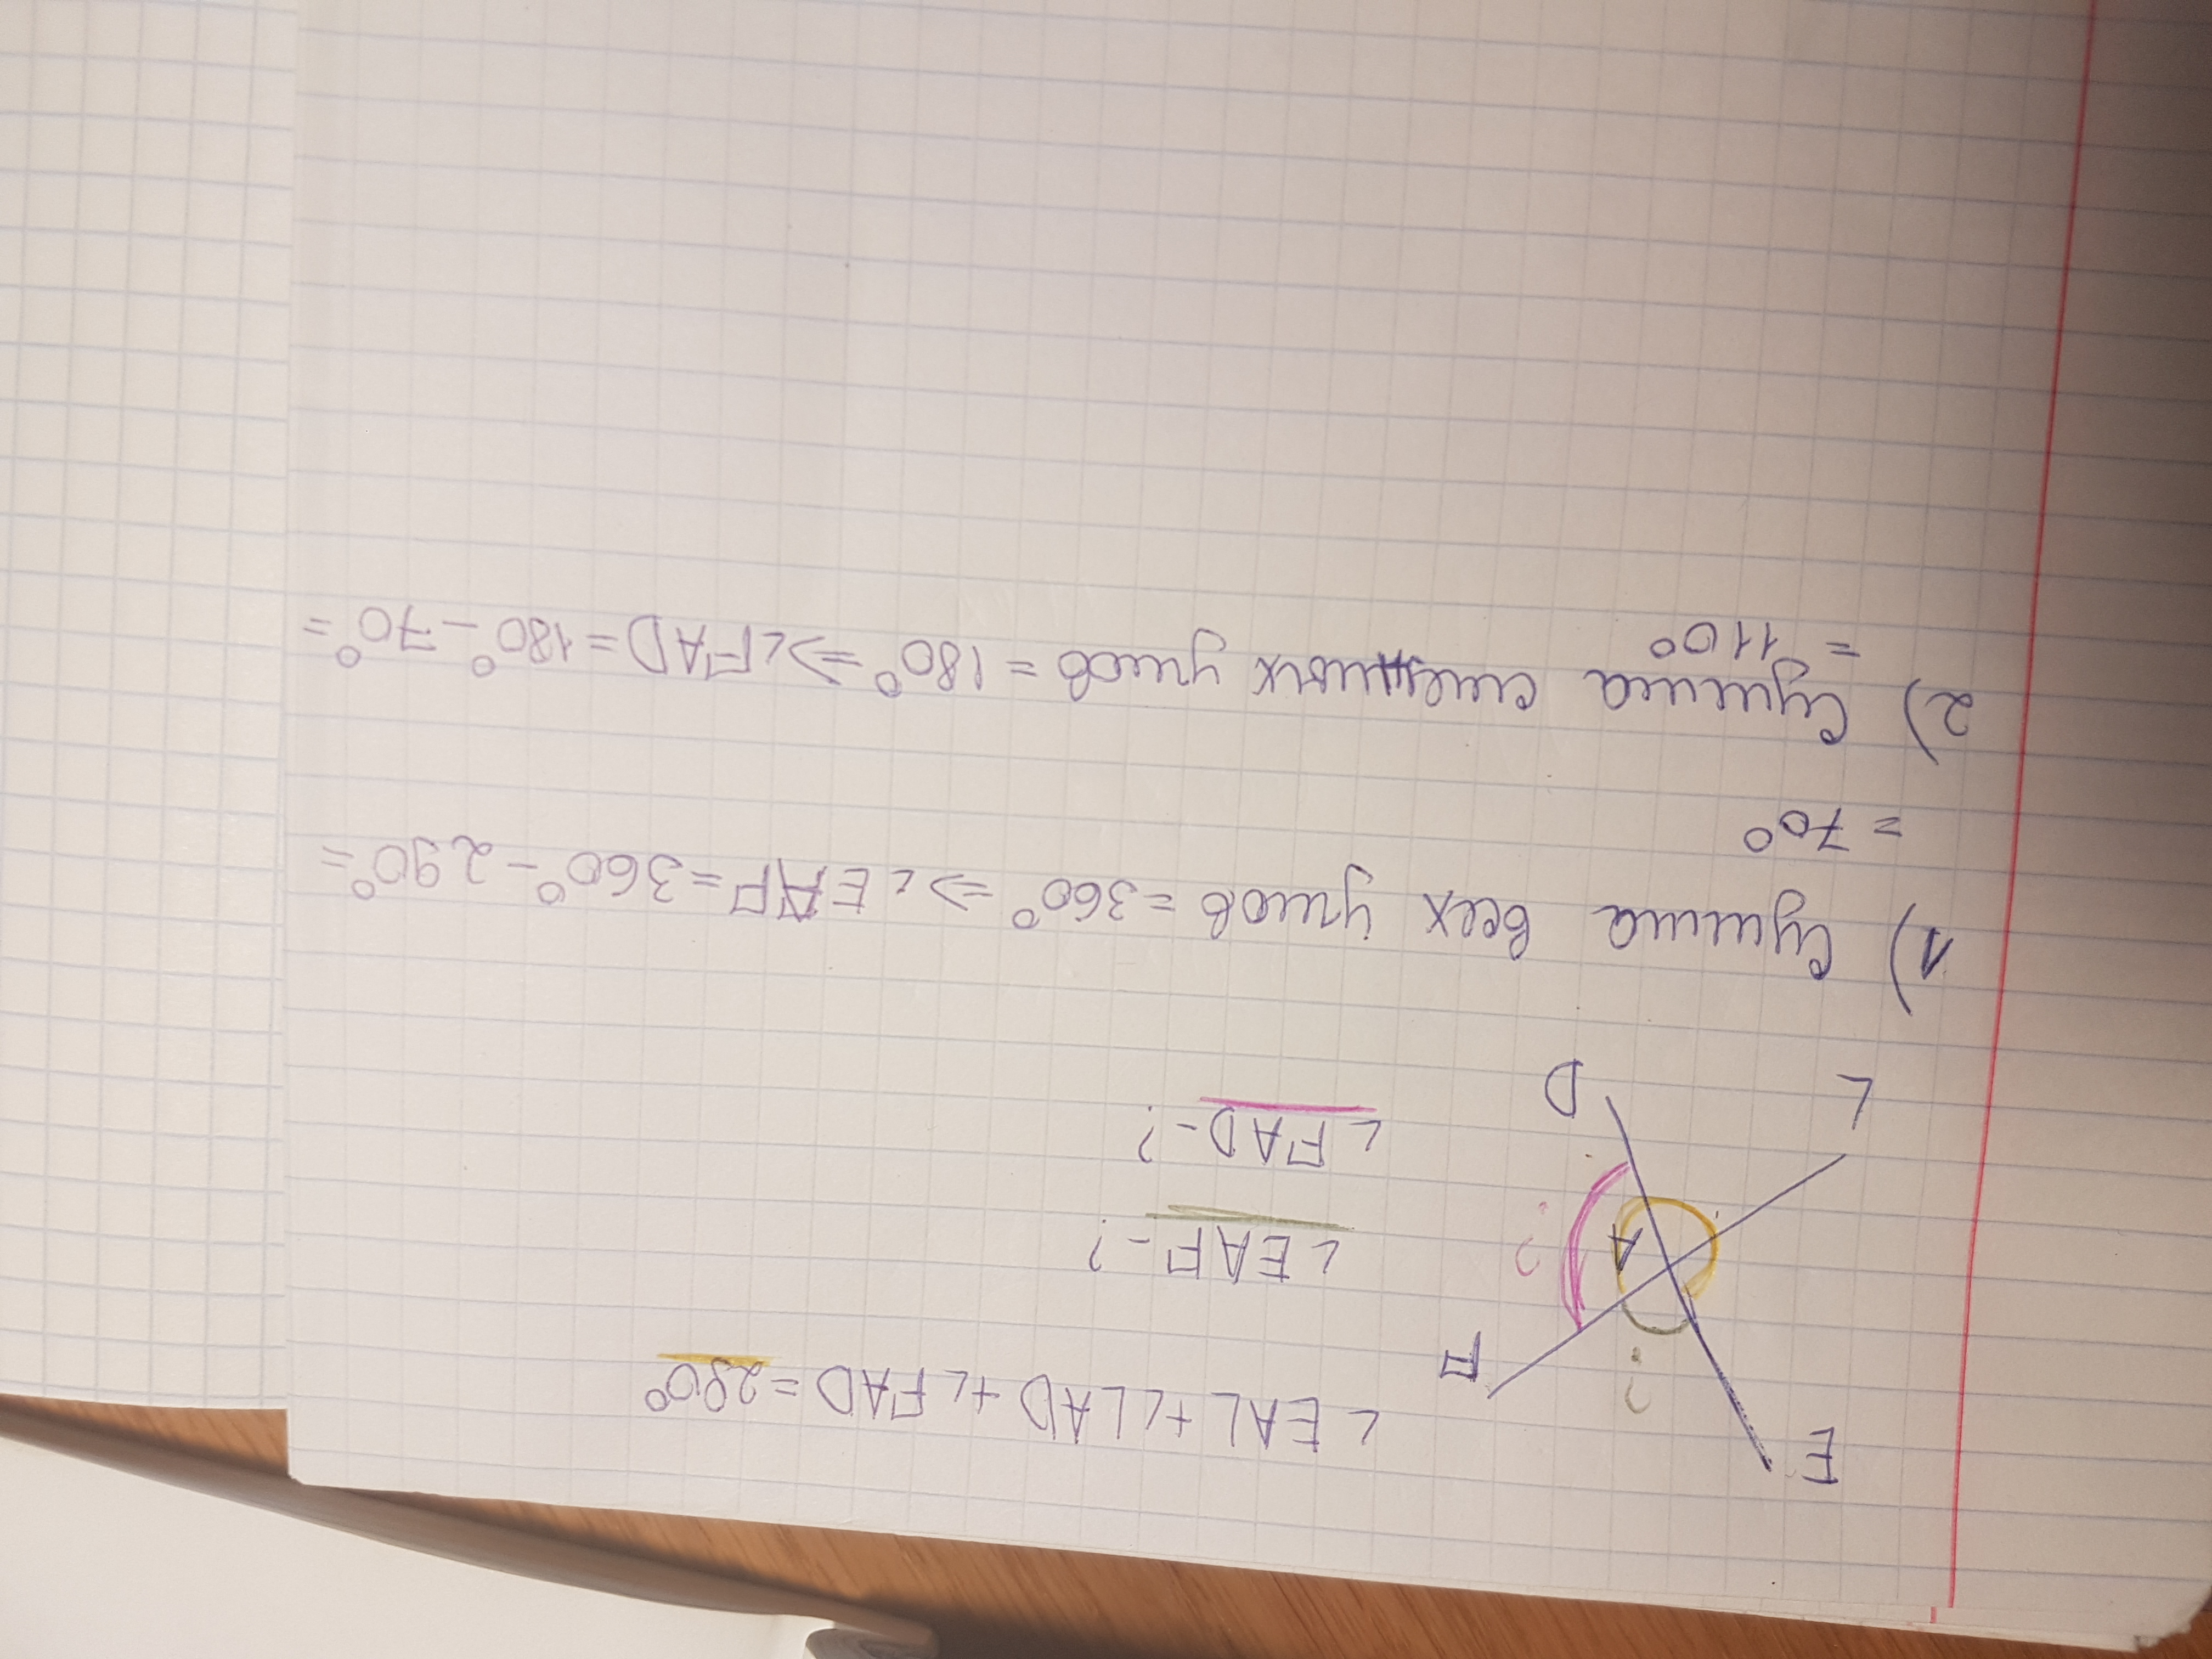 E
∠EAL+∠LAD+∠FAD=290°
?
F
∠EAF-?
A
?
∠FAD-?
L
D
1) Сумма всех углов = 360° => ∠EAF=360°-290°=
= 70°
2) Сумма смежных углов = 180° => ∠FAD=180°-70°=
= 110°